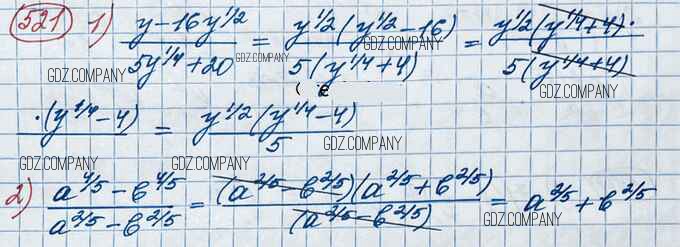 521 1) (y - 16y^(1/2))/(5y^(1/4) + 20) = (y^(1/2)(y^(1/2) - 16))/(5(y^(1/4) + 4)) = (y^(1/2)(y^(1/4) + 4) ·)/(5(y^(1/4) + 4))
· (y^(1/4) - 4) = (y^(1/2)(y^(1/4) - 4))/5
2) (a^(4/5) - b^(4/5))/(a^(2/5) - b^(2/5)) = ((a^(2/5) - b^(2/5))(a^(2/5) + b^(2/5)))/((a^(2/5) - b^(2/5))) = a^(2/5) + b^(2/5)
GDZ.COMPANY GDZ.COMPANY GDZ.COMPANY GDZ.COMPANY
GDZ.COMPANY GDZ.COMPANY
GDZ.COMPANY GDZ.COMPANY
GDZ.COMPANY